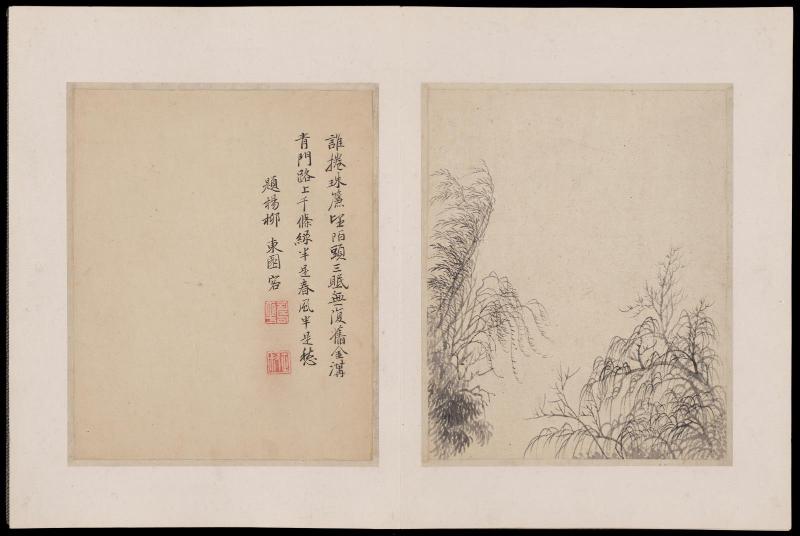 誰捲珠簾望陌頭三眠無復舊金溝
青門路上千條綠半是春風半是愁
題楊柳 東園客